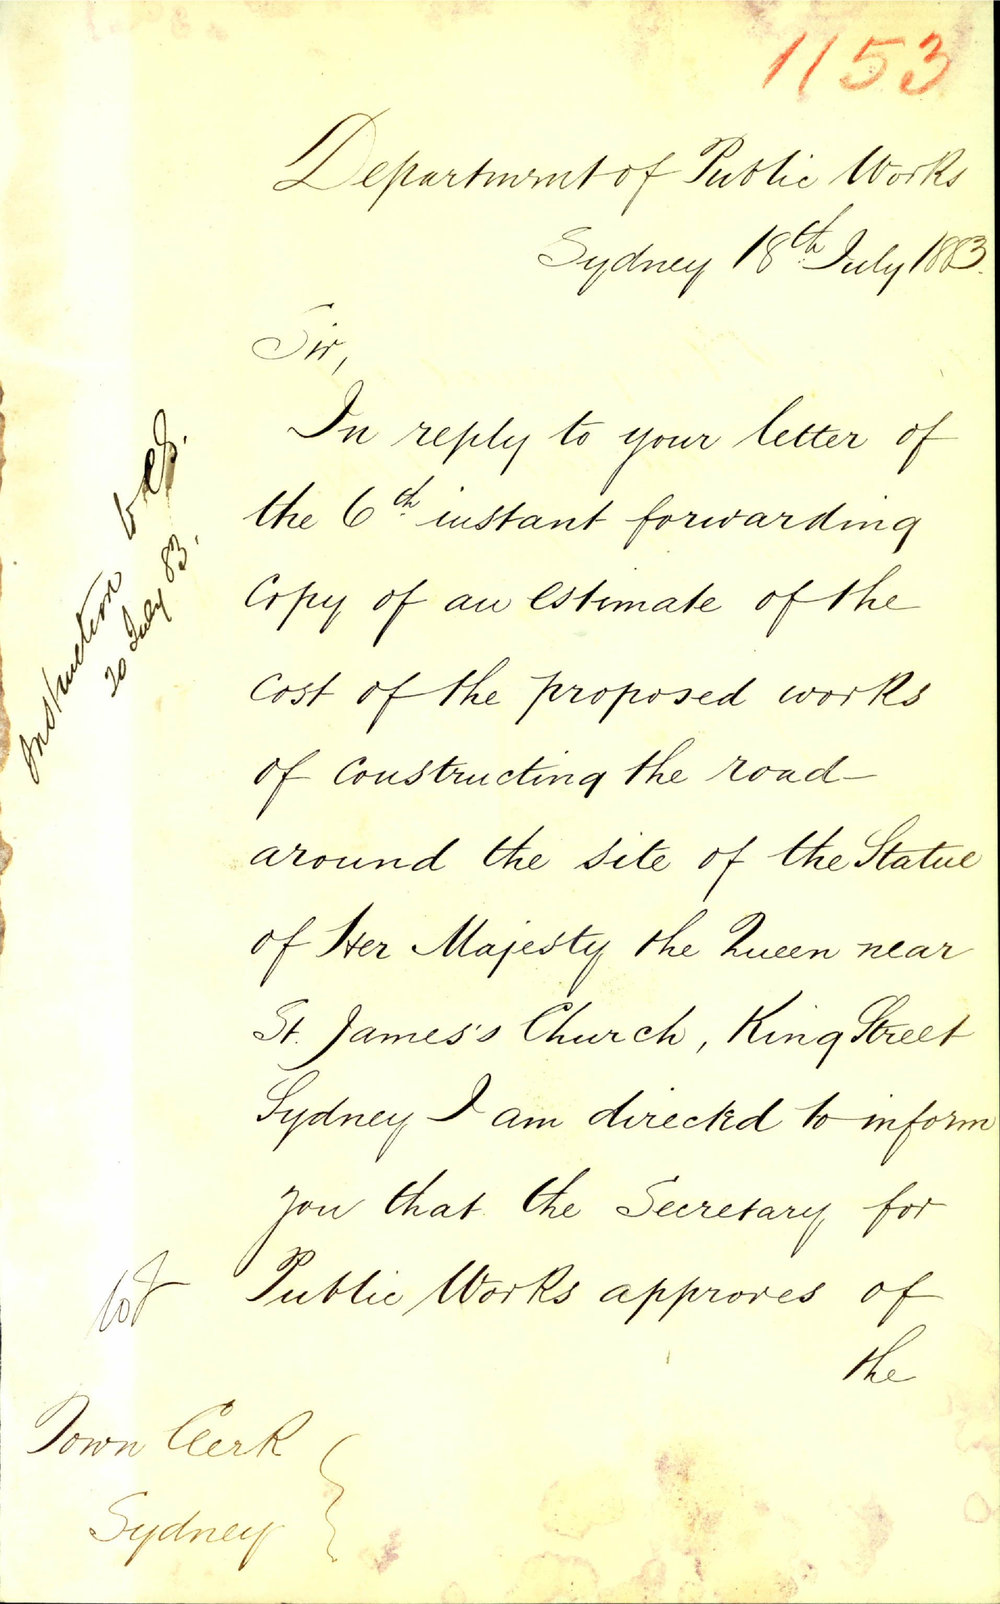 1153
Department of Public Works
Sydney 18th July 1883.
Sir,
In reply to your letter of
the 6th instant forwarding
Copy of an estimate of the
Cost of the proposed works
of Constructing the road
around the site of the Statue
of Her Majesty the Queen near
St. James's Church, King Street
Sydney I am directed to inform
you that the Secretary for
Public Works approves of
the
Town Clerk
Sydney
Instruction to
20 July 83.